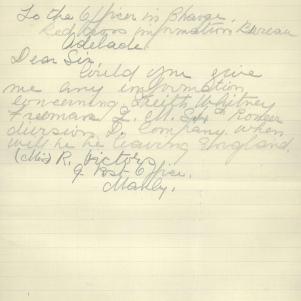 To the Officer in Charge.
Red Cross Information Bureau
Adelade.
Dear Sir
Could you give
me any information
concerning Whitney
Freeman
Company when
will he be leaving England.
(Miss) R. Victor
Post Office.
Manly.